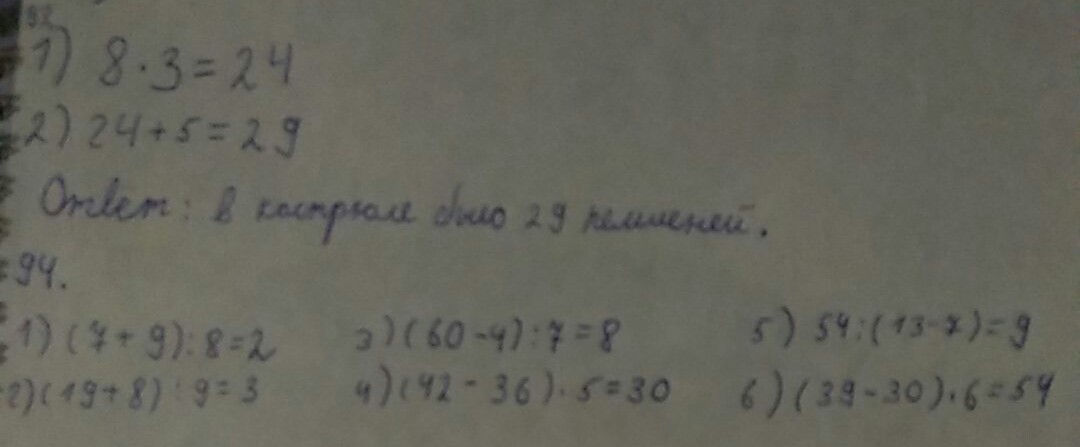 92
1) 8·3=24
2) 24+5=29
Ответ: в кастрюле было 29 пельменей.
94.
1) (7+9):8=2 3) (60-4):7=8 5) 54:(13-7)=9
2) (19+8):9=3 4) (42-36)·5=30 6) (39-30)·6=54